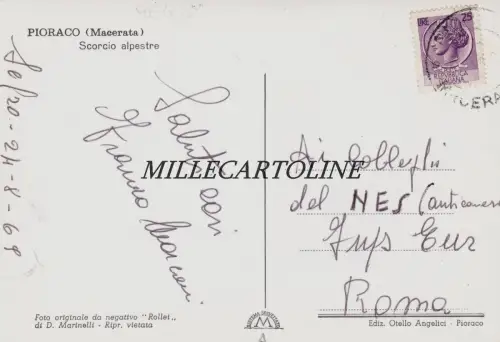 PIORACO (Macerata)
Scorcio alpestre
LIRE 25
REPUBBLICA
ITALIANA
CERA
24-8-69
Saluti cari
Franco
MILLECARTOLINE
Ai Colleghi
del NES (anticancer
Eur
Roma
Foto originale da negativo "Rollei"
di D. Marinelli - Ripr. vietata
M
Ediz. Otello Angelici - Pioraco